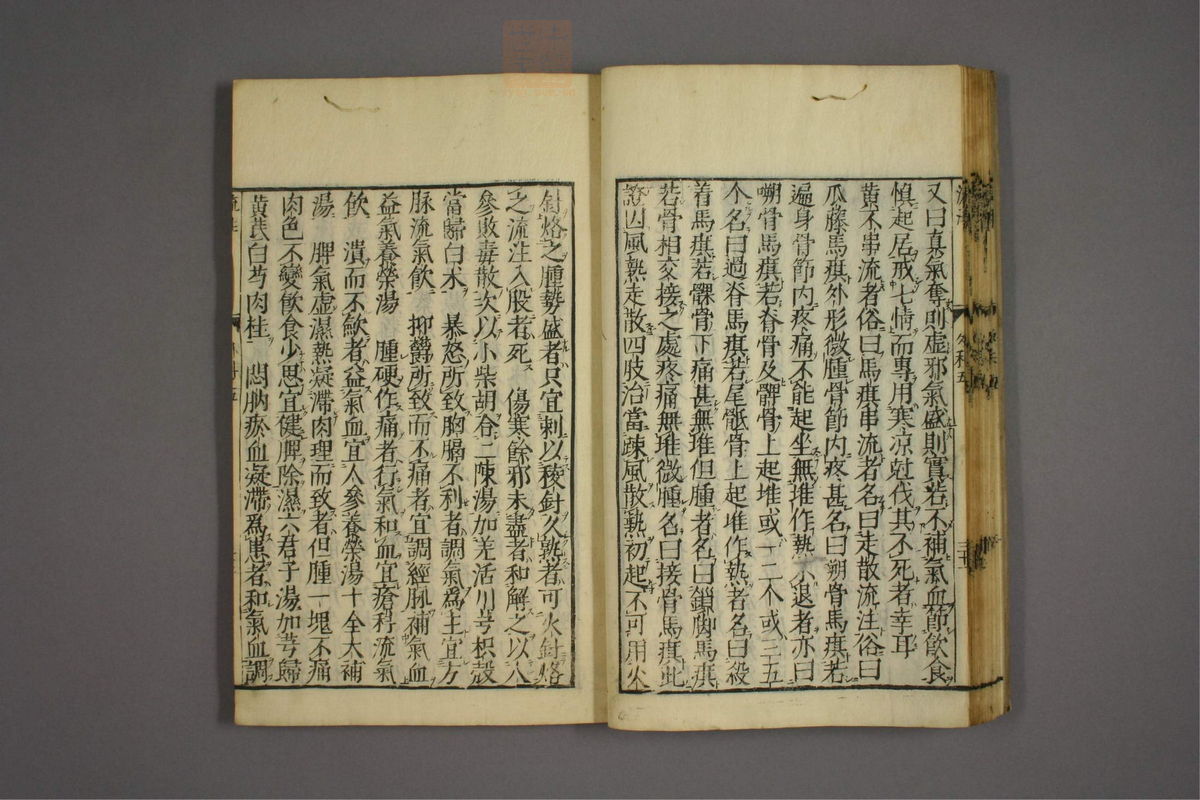 又曰真氣奪則虛邪氣盛則實若不補氣血節飲食
慎起居戒七情而專用寒凉尅伐其不死者幸耳
黄不串流者俗曰馬㾵串流者名曰走散流注俗曰
瓜藤馬㾵外形微腫骨節内疼甚名曰朔骨馬㾵若
遍身骨節内疼痛不能起坐無堆作熱不退者亦曰
嗍骨馬㾵若脊骨及髀骨上起堆或一二个或三五
个名曰過脊馬㾵若尾骶骨上起堆作熱者名曰殺
着馬㾵若髁骨下痛甚無堆但腫者名曰鎖脚馬㾵
若骨相交接之處疼痛無堆微腫名曰接骨馬㾵此
證因風熱走散四肢治當疎風散熱初起不可用火
針烙之腫勢盛者只宜刺以稜針久熟者可火針烙
之流注入股者死 傷寒餘邪未盡者和解之以人
參敗毒散次以小柴胡合二陳湯加羌活川芎枳殼
當歸白术 暴怒所致胸膈不利者調氣爲主宜方
脉流氣飲 抑欝所致而不痛者宜調經脉補氣血
益氣養榮湯 腫硬作痛者行氣和血宜瘡科流氣
飲 潰而不歛者益氣血宜人參養榮湯十全大補
湯 脾氣虛濕熱凝滯肉理而致者但腫一塊不痛
肉色不變飲食少思宜健脾除濕六君子湯加芎歸
黄芪白芍肉桂 閃肭瘀血凝滯爲患者和氣血調